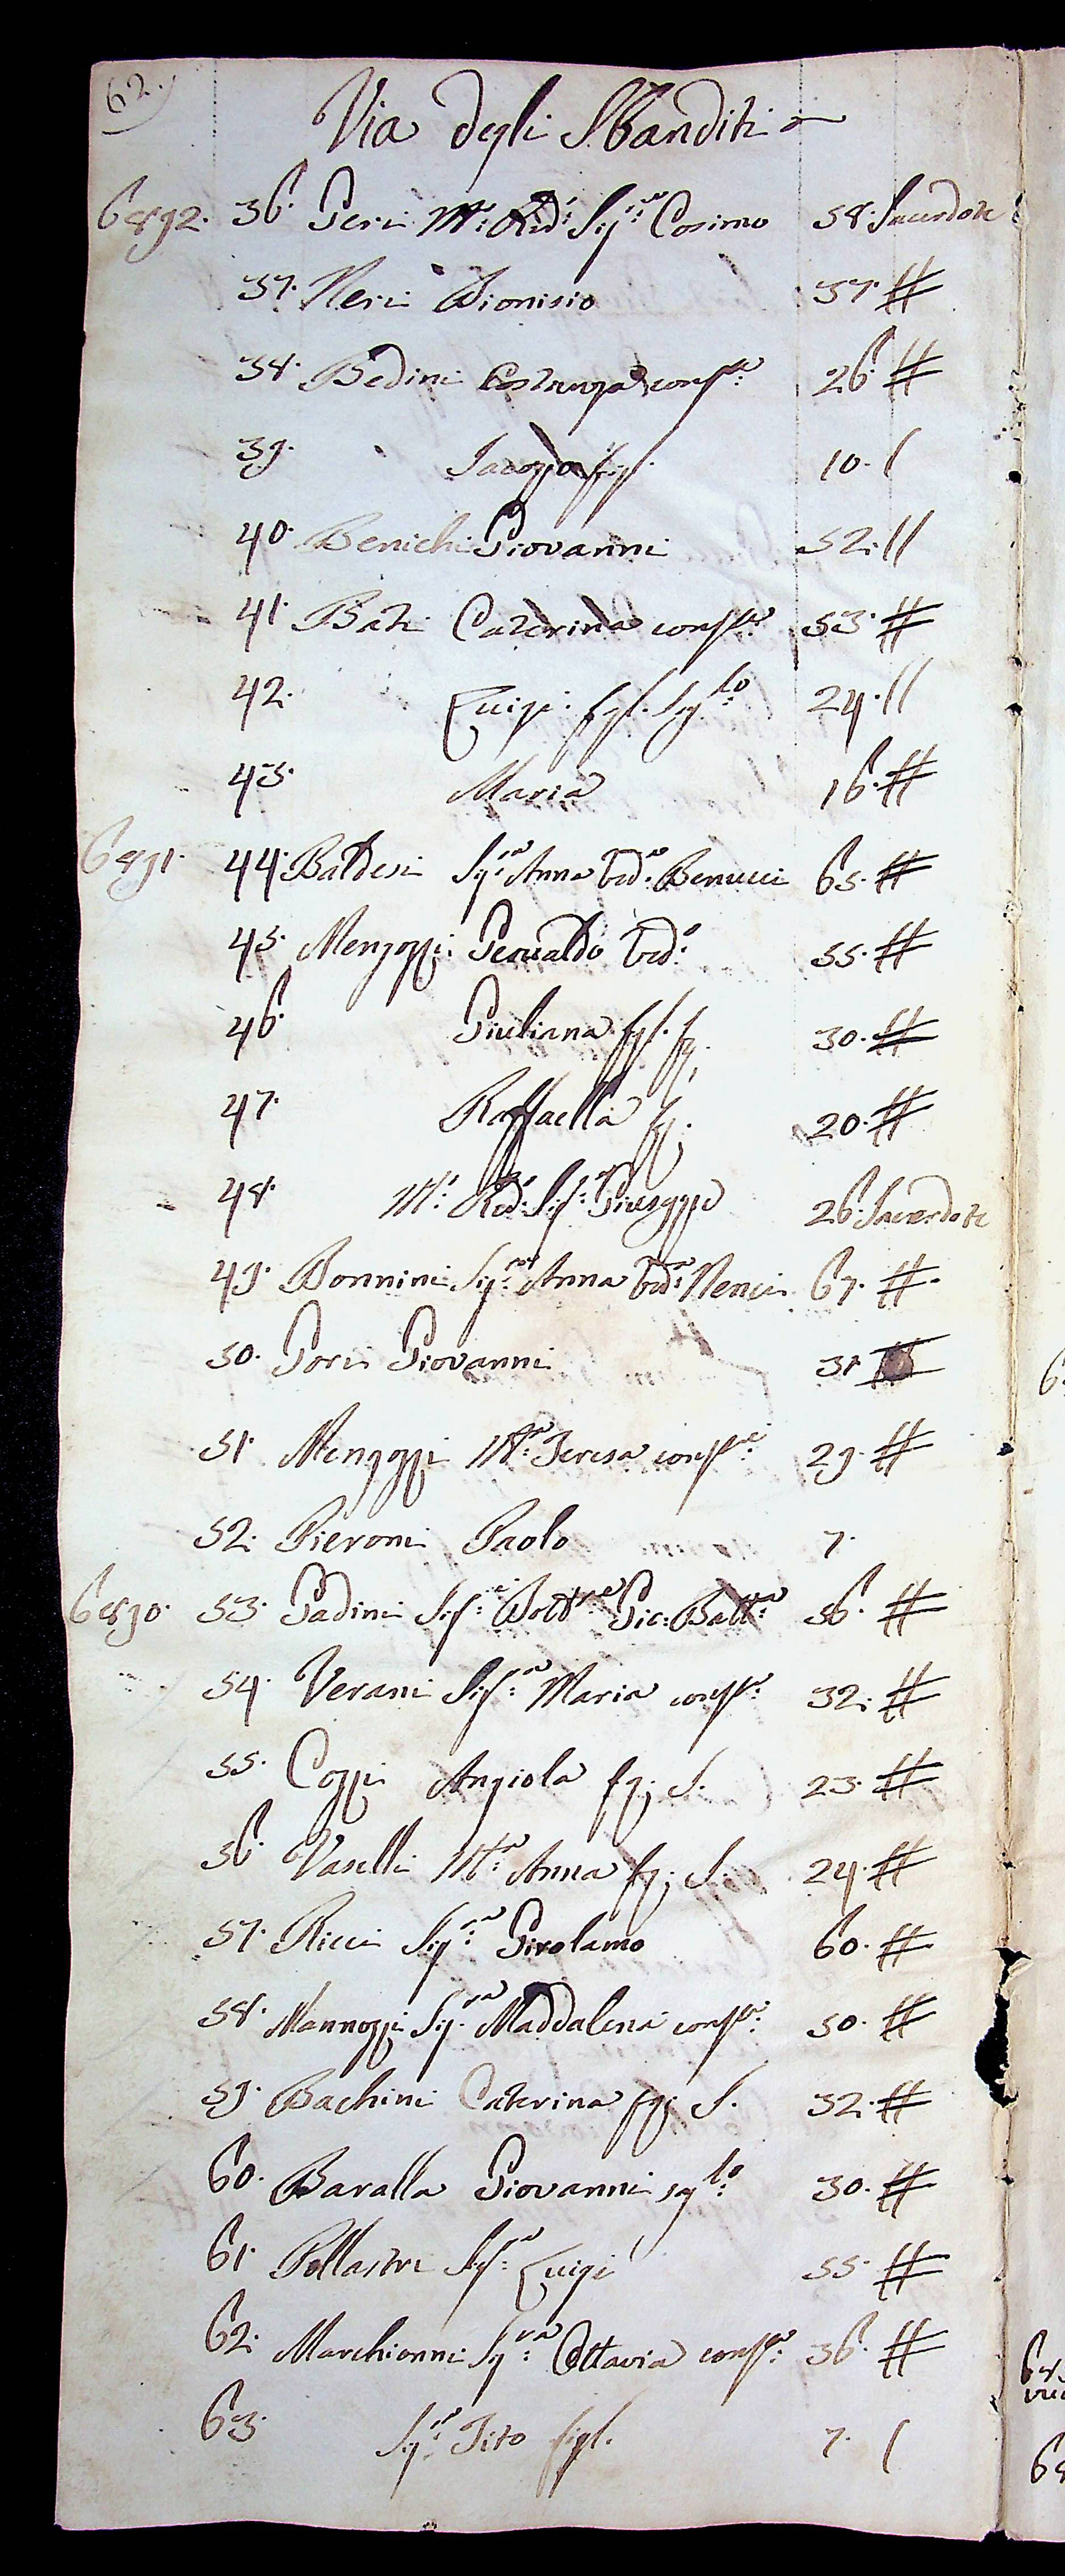 62.
Via degli Sbanditi
6892. 36. Geri M.to Rev.do Sig.re Cosimo 58. Sacerdote
37. Neri Dionisio 37. #
38. Bedini Costanza cons.te 26. #
39. Jacopo figl. 10. /
40. Benichi Giovanni 52. //
41. Bati Caterina cons.te 53. #
42. Luigi figl. sg.lo 24. //
43. Maria 16. #
6891. 44. Baldesi Sig.ra Anna Ved.a Benucci 65. #
45. Menzozzi Gesualdo Ved.o 55. #
46. Giuliana figl. fg. 30. #
47. Raffaella fg. 20. #
48. M.to Rev.do Sig.re Giuseppe 26. Sacerdote
49. Bonnini Sig.ra Anna Ved.a Nenci 67. #
50. Gori Giovanni 31 #
51. Menzozzi M.a Teresa cons.te 29. #
52. Pieroni Paolo 7.
6890. 53. Gadini Sig.re Dott.re Gio: Batt.a 56. #
54. Verani Sig.ra Maria cons.te 32. #
55. Cozzi Angiola fg; S. 23. #
56. Vaselli M.a Anna fg; S. 24. #
57. Ricci Sig.re Girolamo 60. #
58. Mannozzi Sig.ra Maddalena cons.te 50. #
59. Bachini Caterina fg; S. 32. #
60. Baralla Giovanni sg.lo 30. #
61. Pollastri Sig.re Luigi 55. #
62. Marchionni Sig.ra Ottavia cons.te 36. #
63. Sig.re Tito figl. 7. /